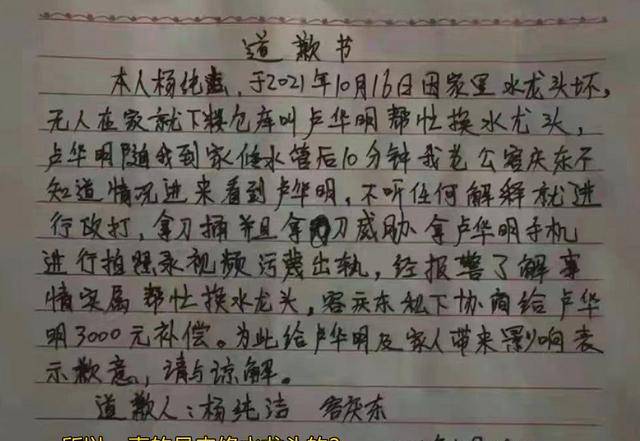 道歉书
本人杨纯洁,于2021年10月16日因家里水龙头坏,
无人在家就下楼仓库叫卢华明帮忙换水龙头,
卢华明随我到家修水管后10分钟我老公客庆东不
知道情况进来看到卢华明,不听任何解释就进
行殴打,拿刀捅并且拿刀威胁拿卢华明手机
进行拍照录视频污蔑出轨,经报警了解事
情实属帮忙换水龙头,客庆东私下协商给卢华
明3000元补偿。为此给卢华明及家人带来影响表
示歉意,请与谅解。
道歉人:杨纯洁 客庆东